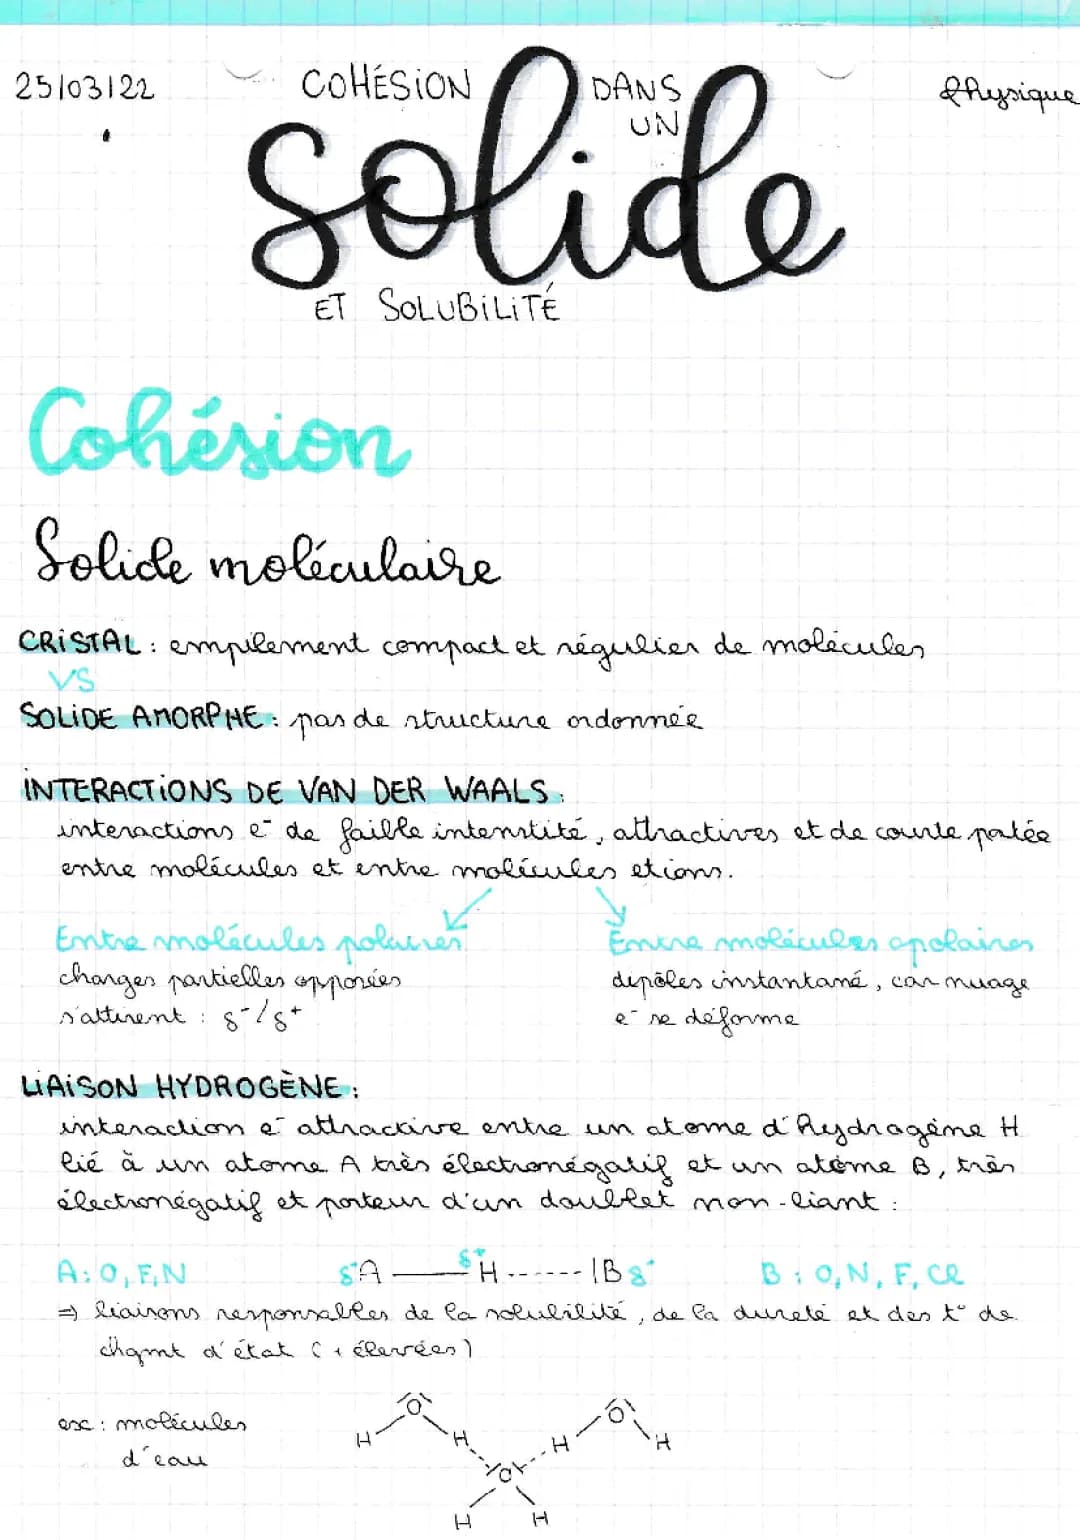 25/03/22
COHÉSION DANS UN
Physique
solide
ET SOLUBILITÉ
Cohésion
Solide moléculaire
CRISTAL : empilement compact et régulier de molécules
VS
SOLIDE AMORPHE : pas de structure ordonnée
INTERACTIONS DE VAN DER WAALS :
interactions e⁻ de faible intenstité, attractives et de courte portée
entre molécules et entre molécules etions.
Entre molécules polaires
charges partielles opposées
s'attirent : δ⁻/δ⁺
Entre molécules apolaires
dipôles instantané, car nuage
e⁻ se déforme
LIAISON HYDROGÈNE :
interaction e⁻ attractive entre un atome d'hydrogène H
lié à un atome A très électronégatif et un atome B, très
électronégatif et porteur d'un doublet non-liant :
A : O, F, N
δ⁻A — δ⁺H ------ |B δ⁻
B : O, N, F, Cl
⇒ liaisons responsables de la solubilité, de la dureté et des t° de
chgmt d'état (+ élevées)
ex : molécules
d'eau
O O
H H H H
O
H H